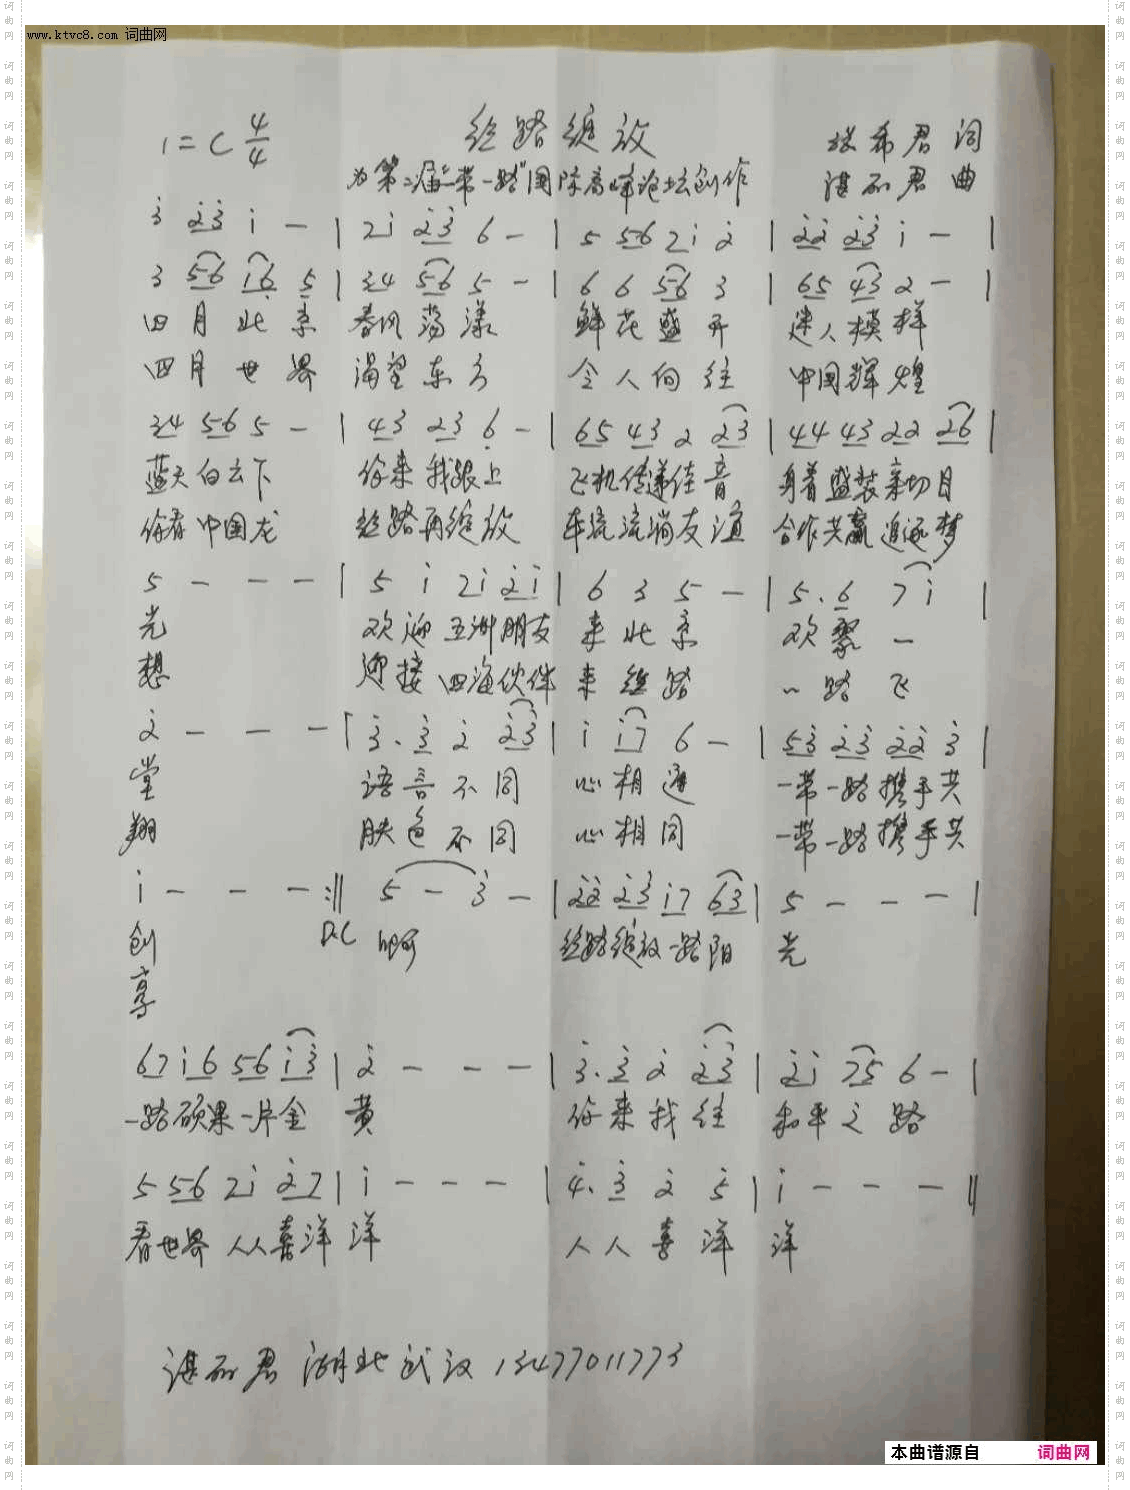 www.ktvc8.com 词曲网
1=C 4/4 丝路绽放 希君词
为第二届"一带一路"国际高峰论坛创作 谌丽君曲
3̇ 2̇3̇ 1̇ — | 21̇ 2̇3̇ 6 — | 5 56 21̇ 2̇ | 2̇2̇ 2̇3̇ 1̇ — |
3 56 1̇6 5 | 34 56 5 — | 6 6 56 3 | 65 43 2 — |
四月北京 春风荡漾 鲜花盛开 迷人模样
四月世界 渴望东方 令人向往 中国辉煌
34 56 5 — | 43 23 6̣ — | 65 43 2 23 | 44 43 22 26 |
蓝天白云下 你来我跟上 飞机传递佳音 身着盛装亲切目
你看中国龙 丝路再绽放 车流流淌友谊 合作共赢追逐梦
5 — — — | 5 1̇ 21̇ 2̇1̇ | 6 3 5 — | 5. 6 71̇ |
光 欢迎五洲朋友 来北京 欢聚一
想 迎接四海伙伴 来丝路 一路飞
2̇ — — — | 3̇. 3̇ 2̇ 2̇3̇ | 1̇ 1̇7 6 — | 53̇ 2̇3̇ 2̇2̇ 3̇ |
堂 语言不同 心相通 一带一路携手共
翔 肤色不同 心相同 一带一路携手共
1̇ — — — :‖ 5 — 3̇ — | 2̇2̇ 2̇3̇ 1̇7 63 | 5 — — — |
创 D.C 啊 丝路绽放一路阳 光
享
67 1̇6 56 1̇3̇ | 2̇ — — — | 3̇. 3̇ 2̇ 2̇3̇ | 2̇1̇ 75 6 — |
一路硕果一片金 黄 你来我往 和平之路
5 56 21̇ 2̇7 | 1̇ — — — | 4̇. 3̇ 2̇ 5̇ | 1̇ — — — ‖
看世界人人喜洋 洋 人人喜洋 洋
谌丽君 湖北武汉 13477011773
本曲谱源自 词曲网